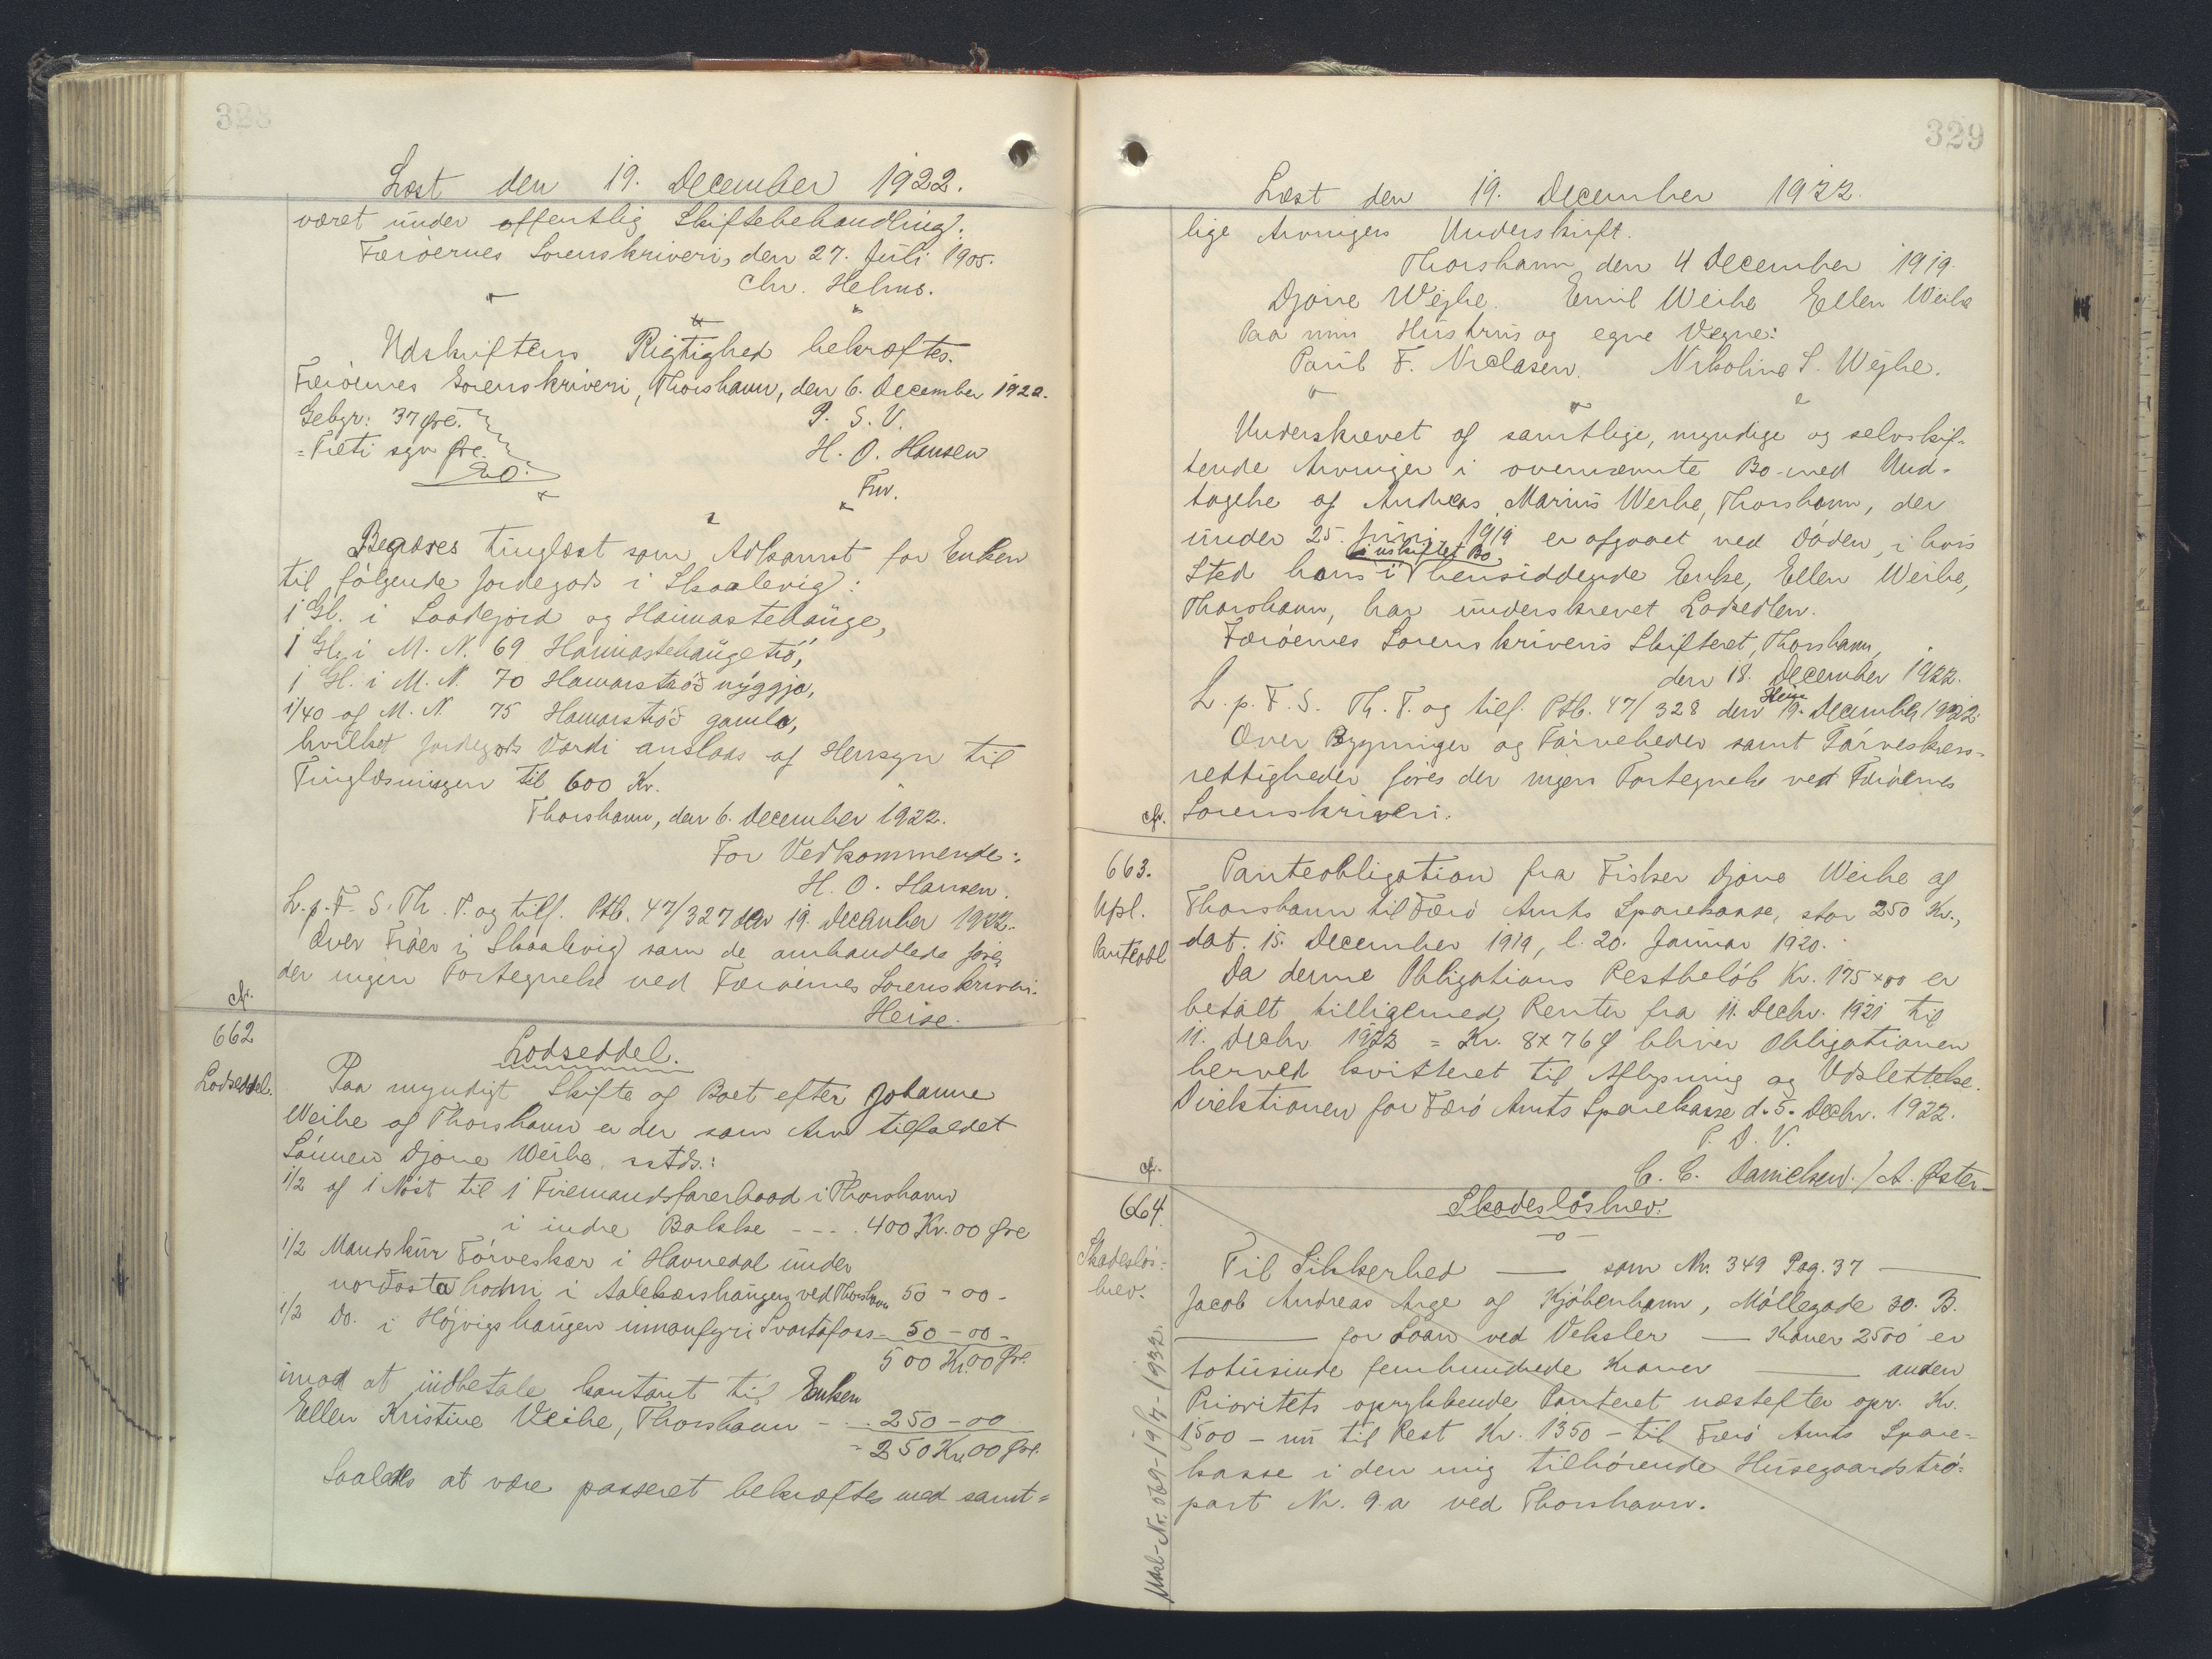 328
Læst den 19. December 1922.
været under offentlig Skiftebehandling.
Færöernes Sorenskriveri, den 27. Juli 1905.
Chr. Helms.
Udskriftens Rigtighed bekræftes.
Færöernes Sorenskriveri, Thorshavn, den 6. December 1922.
Gebyr: 37 Øre.
P. S. V.
= Treti syv Øre.
H. O. Hansen
HO.
Fm.
Begæres tinglæst som Adkomst for Enken
til følgende Jordegods i Skaalevig:
1 Gl. i Laadejord og Haimastehauge,
1 Gl. i M. N. 69 Haimastehaugetrö,
1 Gl. i M. N. 70 Hamarströð nýggja,
1/40 af M. N. 75 Hamarströð gamla,
hvilket Jordegods Værdi anslaas af Hensyn til
Tinglæsningen til 600 Kr.
Thorshavn, den 6. December 1922.
For Vedkommende:
H. O. Hansen.
L. p. F. S. Th. T. og tilf. Ptb. 47/327 den 19. December 1922.
Over Tröer i Skaalevig som de omhandlede føres
der ingen Fortegnelse ved Færöernes Sorenskriveri.
cfr.
Heise.
662
Lodseddel.
Lodseddel.
Paa myndigt Skifte af Boet efter Johanne
Weihe af Thorshavn er der som Arv tilfaldet
Sönnen Djóne Weihe, sstds.:
1/2 af 1 Nöst til 1 Firemandsfarerbaad i Thorshavn
i indre Bakke - - - 400 Kr. 00 Øre
1/2 Mandskur Törveskær i Havnedal under
norðasta hodni i Aalekærshaugen ved Thorshavn 50 - 00 -
1/2 Do. i Højvigshaugen innanfyri Svartafoss - 50 - 00 -
500 Kr. 00 Øre.
imod at indbetale kontant til Enken
Ellen Kristine Weihe, Thorshavn - - 250 - 00
= 250 Kr. 00 Øre.
Saaledes at være passeret bekræftes med samt=
329
Læst den 19. December 1922.
lige Arvingers Underskrift.
Thorshavn, den 4 December 1919.
Djóne Wejhe. Emil Weihe Ellen Weihe
Paa min Hustrus og egne Vegne:
Paul F. Niclasen. Nikoline S. Wejhe.
Underskrevet af samtlige, myndige og selvskif=
tende Arvinger i ovennævnte Bo med Und=
tagelse af Andreas Marius Weihe, Thorshavn, der
under 25. Juni 1919 er afgaaet ved Döden, i hvis
i uskiftet Bo
Sted hans i hensiddende Enke, Ellen Weihe,
Thorshavn, har underskrevet Lodsedlen.
Færöernes Sorenskriveris Skifteret, Thorshavn,
den 18. December 1922.
Heise
L. p. F. S. Th. T. og tilf. Ptb. 47/328 den 19. December 1922.
Over Bygninger og Törveheder samt Törveskærs=
rettigheder föres der ingen Fortegnelse ved Færöernes
cfr. Sorenskriveri.
663.
Upl.
Panteobl
Panteobligation fra Fisker Djóne Weihe af
Thorshavn til Færö Amts Sparekasse, stor 250 Kr.,
dat. 15. December 1919, l. 20. Januar 1920.
Da denne Obligations Restbelöb Kr. 175 × 00 er
betalt tilligemed Renter fra 11. Decbr. 1921 til
11. Decbr 1922 = Kr. 8 × 76 Ø bliver Obligationen
herved kvitteret til Aflysning og Udslettelse.
Direktionen for Færö Amts Sparekasse d. 5. Decbr. 1922.
P. D. V.
cfr.
C. C. Danielsen. / A. Øster-
664.
Skadeslös=
brev.
Skadeslösbrev.
Til Sikkerhed — som Nr. 349 Pag. 37 —
Jacob Andreas Arge af Kjöbenhavn, Möllegade 30. B.
— for Laan ved Veksler — Kroner 2500 er
totusinde femhundrede Kroner — anden
Prioritets oprykkende Panteret næstefter opr. Kr.
1500 - nu til Rest Kr. 1350 - til Færö Amts Spare=
kasse i den mig tilhörende Husegaardströ=
part Nr. 9.a ved Thorshavn.